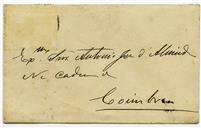 Ex.mo Snr. Antonio José d'Almeida
Na cadeia
Coimbra